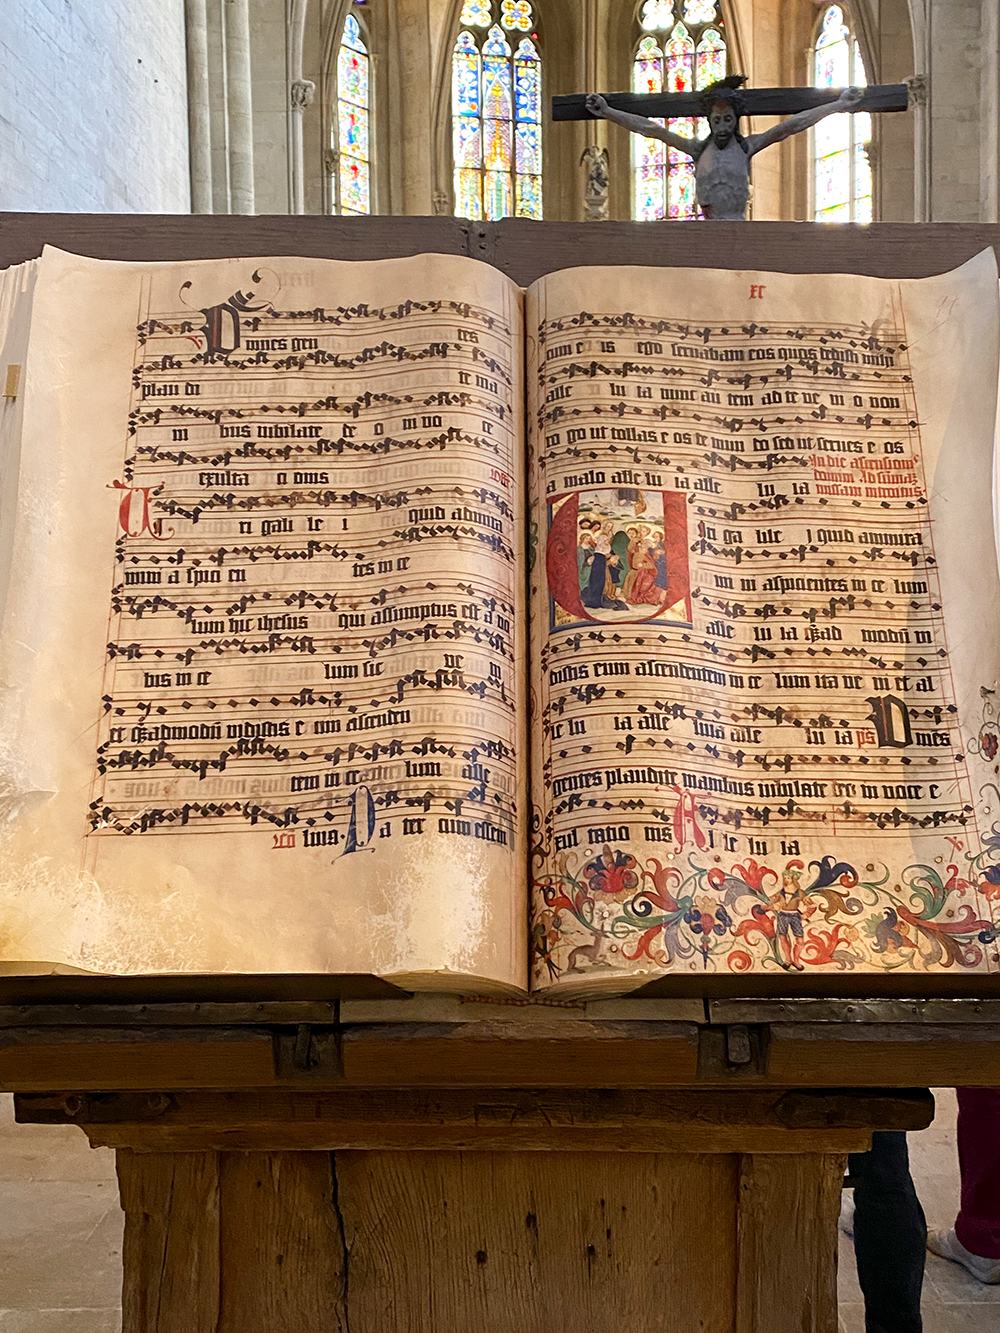 Omnes gen tes
plau di te ma
ni bus iubilate de o in vo ce
exulta ti onis
Vi ri gali le i quid admira
mini a spici en tes in ce
lum hic ihesus qui assumptus est a vo
bis in ce lum sic ve ni
et quēadmodū vidistis e um ascenden
tem in ce lum alle
luia. Pa ter cum essem
xc
cum e is ego servabam eos quos dedisti michi
alle lu ia nunc au tem ad te ve ni o non
ro go ut tollas e os de mun do sed ut serves e os
In die ascensionis
a malo alle lu ia alle lu ia
domini Ad summā
missam introitus
Viri ga lile i quid ammira
mi ni aspicientes in ce lum
alle lu ia quēad modū vi
distis eum ascendentem in ce lum ita ve ni et al
le lu ia alle luia alle lu ia ps Omēs
gentes plaudite manibus iubilate deo in voce e
xul tatio nis Al le lu ia